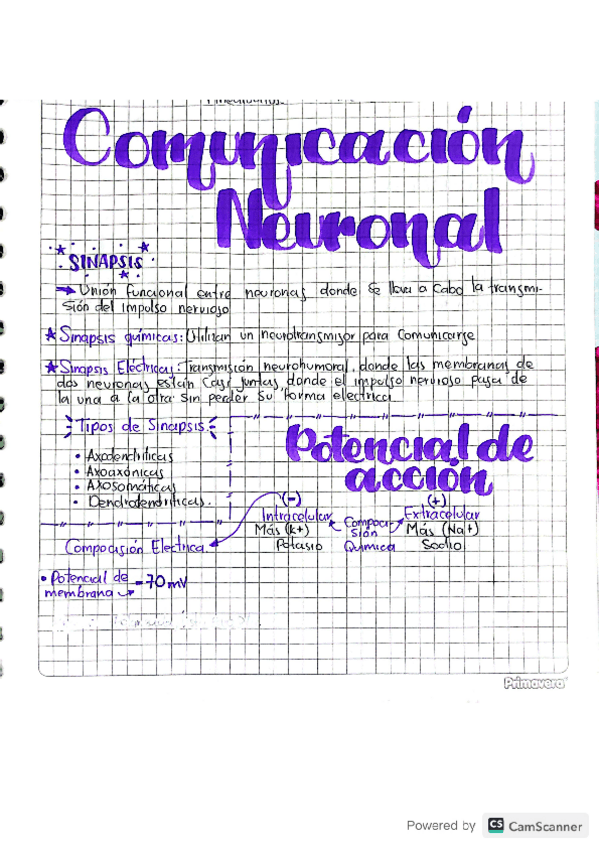 Comunicación
Neuronal
SINAPSIS
Unión funcional entre neuronas donde se lleva a cabo la transmi-
sión del impulso nervioso
Sinapsis químicas: Utilizan un neurotransmisor para comunicarse
Sinapsis Eléctricas: Transmisión neurohumoral, donde las membranas de
dos neuronas están casi juntas, donde el impulso nervioso pasa de
la una a la otra sin perder su forma electrica.
Tipos de Sinapsis:
• Axodendríticas
• Axoaxónicas
• Axosomáticas
• Dendrodendríticas.
Potencial de
acción
(-)
Intracelular
Más (k+)
Potasio
Composi-
sión
Química
(+)
Extracelular
Más (Na+)
Sodio
Composición Electrica.
• Potencial de
membrana
-70 mV
Primavera
Powered by CS CamScanner